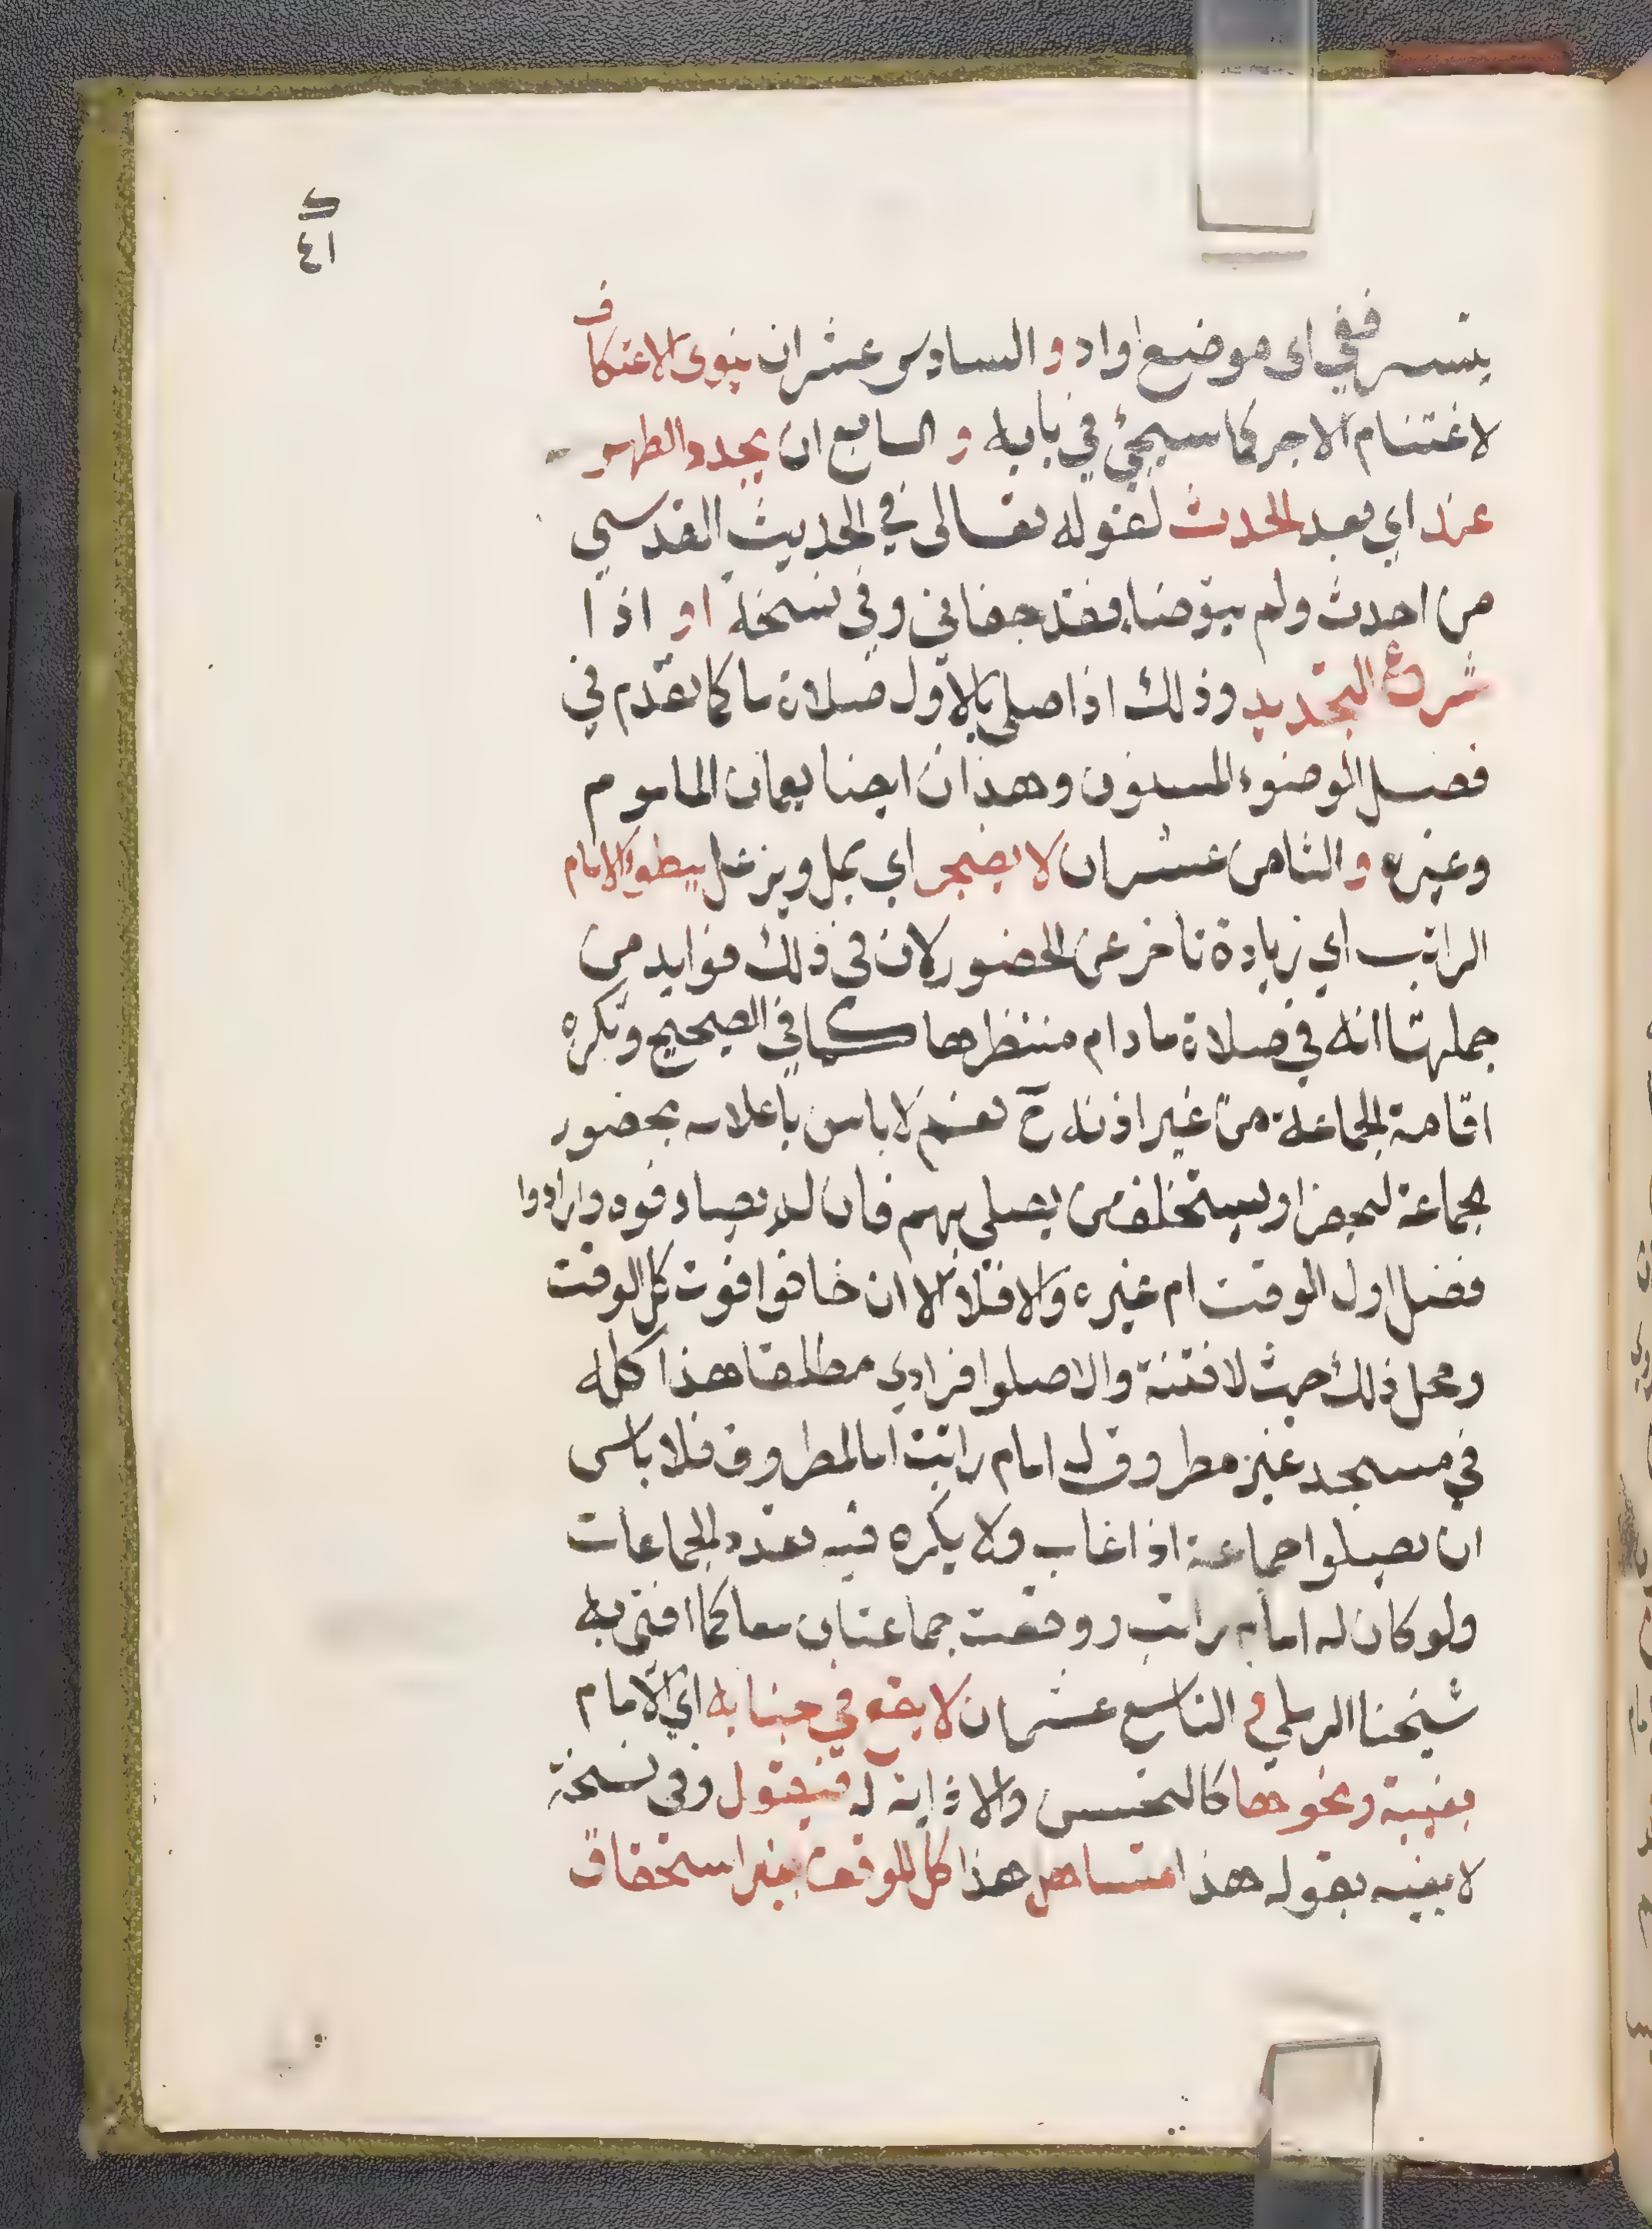 ٤١
يتيسر ففي اى موضع اراد و السادس عشر ان ينوى الاعتكاف
لاغتنام الاجر كما سيجئ في بابه و السابع ان يجدد الطهر
عند اي بعد الحدث لقوله تعالى في الحديث القدسي
من احدث ولم يتوضا فقد جفاني وفي نسخة او اذا
شرع التجديد وذلك اذا صلى بالاول صلاة ما كما تقدم في
فصل الوضوء المسنون وهذان ايضا يعمان الماموم
وغيره و الثامن عشر ان لا يضجر اي يمل ويزعل ببطؤ الامام
الراتب اي زيادة تاخر عن الحضور لان في ذلك فوايد من
جملتها انه في صلاة ما دام منتظرها كما في الصحيح وتكره
اقامة الجماعة من غير اذنه ح نعم لا باس باعلامه بحضور
الجماعة ليحضر او يستخلف من يصلي بهم فان لم يصادفوه وارادوا
فضل اول الوقت ام غيره والا فلا الا ان خافوا فوت كل الوقت
ومحل ذلك حيث لا فتنة والا صلوا فرادي مطلقا هذا كله
في مسجد غير مطروق له امام راتب اما المطروق فلا باس
ان يصلوا جماعة اذا غاب ولا يكره فيه تعدد الجماعات
ولو كان له امام راتب ووقعت جماعتان معا كما افتى به
شيخنا الرملي و التاسع عشر ان لا يقع في جنابه اي الامام
بغيبة ونحوها كالتجسس والاذاية له فيقول وفي نسخة
لا بغيبه بقوله هذا متساهل هذا كل الوقف بغير استحقاق